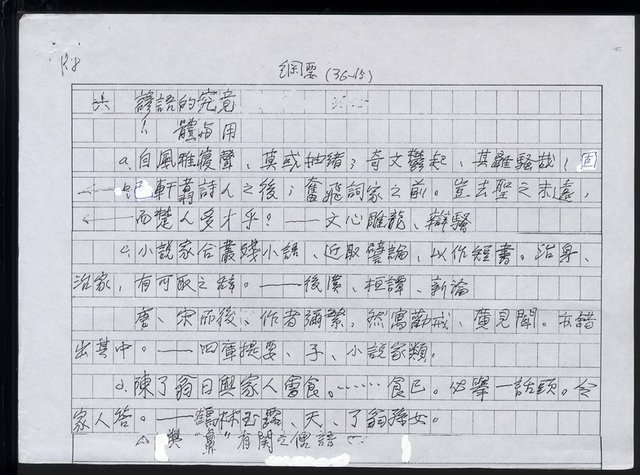 綱要(36-15)
六 諺語的究竟
1、體與用
a.自風雅寢聲，莫或抽緒；奇文鬱起，其離騷哉！固
已軒翥詩人之後；奮飛詞家之前。豈去聖之未遠，
而楚人多才乎？——文心雕龍、辯騷
c.小說家合叢殘小語、近取譬論、以作短書。治身、
治家，有可取之辭。——後漢、桓譚、新論
唐、宋而後、作者彌繁，然寓勸戒、廣見聞。亦錯
出其中。——四庫提要、子、小說家類。
d.陳了翁日與家人會食。……食已。必舉一話頭。令
家人答。——鶴林玉露、天、了翁孫女。
△ 與“鼻”有關之俚語